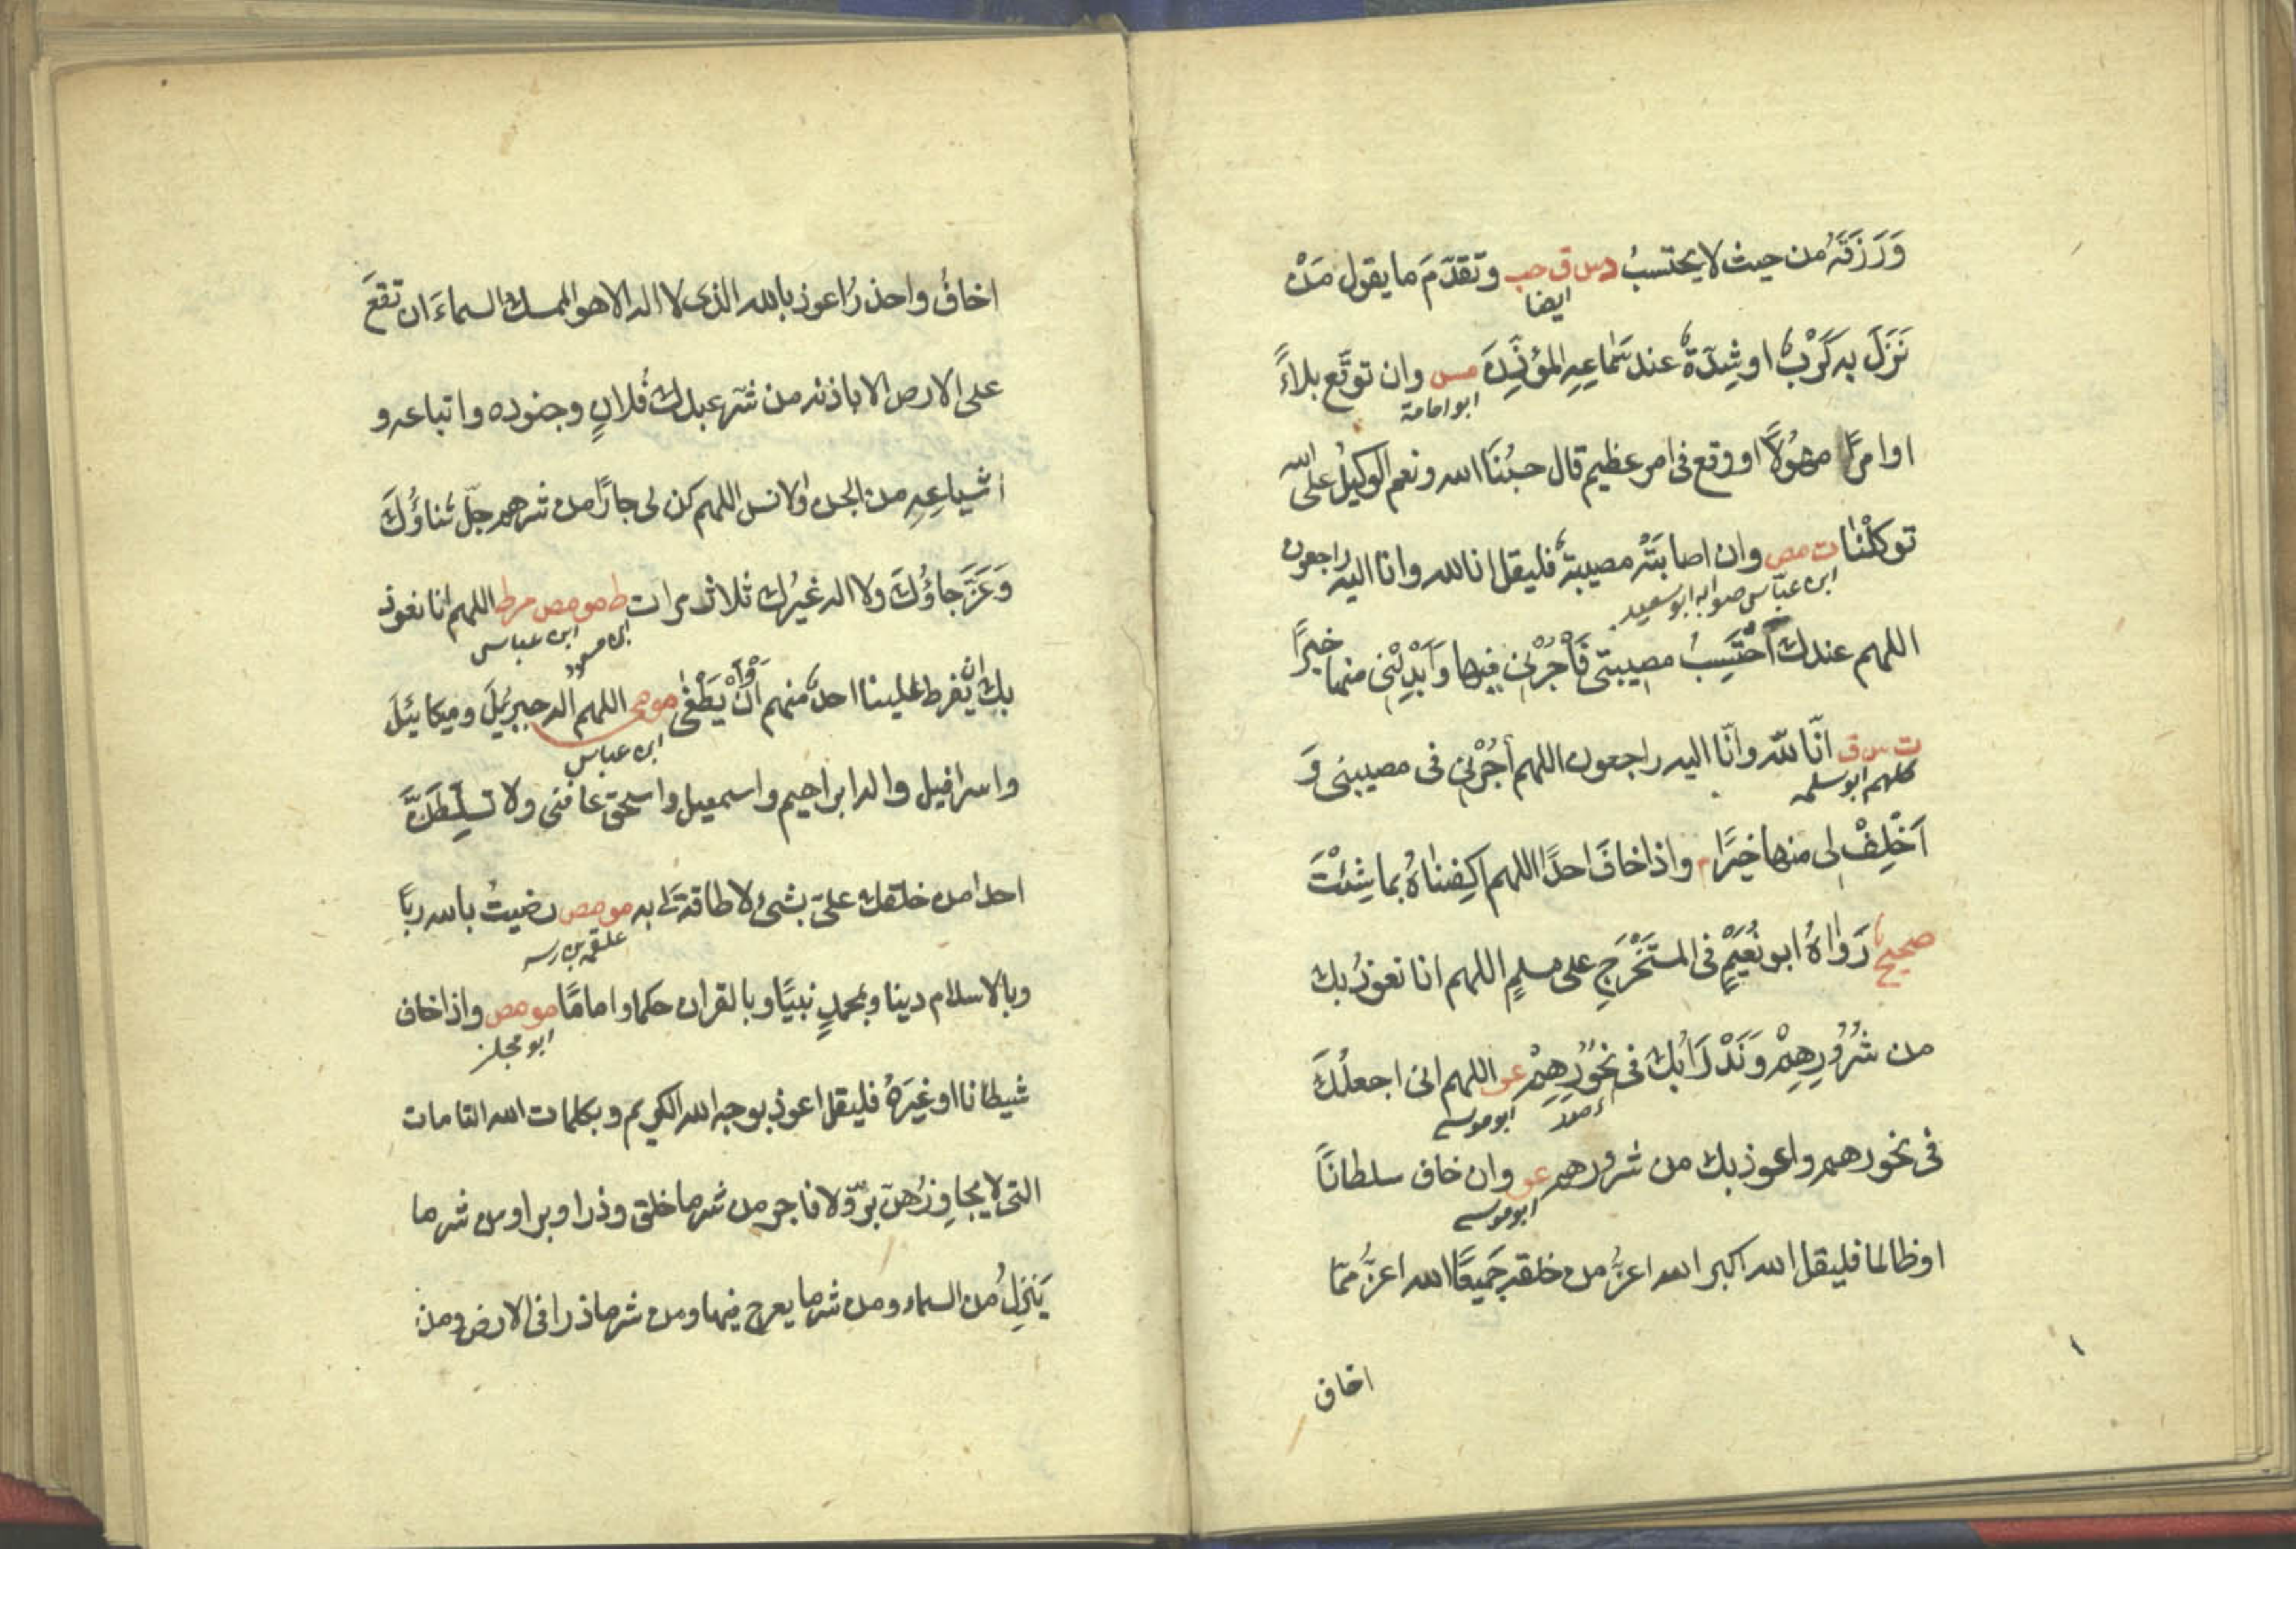 وَرَزَقَهُ من حيث لا يحتسبُ دس ق حب وتقدّمَ ما يقول مَنْ
ايضا
نَزَلَ به كَرْبٌ او شِدّةٌ عند سَمَاعِهِ المؤذِّنِ مس وان توقّع بلاءً
ابو امامة
او امرًا مهُولًا او وقع فى امر عظيم قال حسبُنَا الله ونعم الوكيلُ على الله
توكّلْنا ت مص وان اصابَتْهُ مصيبةٌ فليقل انا لله وانا اليه راجعون
ابن عباس صوابه ابو سعيد
اللهم عندك اَحْتَسِبُ مصيبتى فَأْجُرْنِى فيها وَاَبْدِلْنِى منها خيرًا
ت س ق انّا للّه وانّا اليه راجعون اللهم أجُرْنِى فى مصيبتى وَ
كلهم ابو سلمه
اَخْلِفْ لى منها خيرًا م واذا خافَ احدًا اللهم اكفِناهُ بما شِئْتَ
صحيح رَوَاهُ ابو نُعَيْمٍ فى المستَخْرَجِ على مسلمٍ اللهم انا نعوذُ بك
من شُرُورِهِمْ وَنَدْرَاُ بك فى نحُورِهِمْ عو اللهم انى اجعلُكَ
ابو موسى
فى نحورهم واعوذ بك من شرورهم عو وان خاف سلطانًا
ابو موسى
او ظالما فليقل الله اكبر الله اعزُّ من خلقه جَميعًا الله اعزُّ ممّا
اخاف
اخافُ واحذرُ اعوذ بالله الذى لا اله الا هو الممسك السماءَ ان تقعَ
على الارض الا باذنه من شرّ عبدك فُلانٍ وجنوده واتباعه و
اشياعِهِ من الجن والانس اللهم كن لى جارًا من شرهم جلّ ثناؤُكَ
وَعَزَّ جاؤُكَ ولا اله غيرُك ثلاث مرات ط مو مص مر ط اللهم انا نعوذ
ابن مسعود ابن عباس
بك ان يّفرط علينا احدٌ منهم اَوْ اَنْ يَطْغٰى مو مى اللهم اله جبريئلَ وميكايئلَ
ابن عباس
واسرافيل واله ابراهيم واسمعيل واسحق عافنى ولا تسلِّطَنَّ
احدا من خلقك علىّ بشئ لا طاقة لى به مو مص رضيتُ بالله ربًّا
علقمه بن
وبالاسلام دينا وبمحمدٍ نبيًّا وبالقران حكما وامامًا مو مص واذا خاف
ابو مجلز
شيطانا او غيرَهُ فليقل اعوذ بوجه الله الكريم وبكلمات الله التامات
التى لا يجاوِزُهنّ برّ ولا فاجر من شر ما خلق وذرا وبرا ومن شر ما
يَنزِلُ من السماء ومن شر ما يعرج فيها ومن شر ما ذرا فى الارض ومن